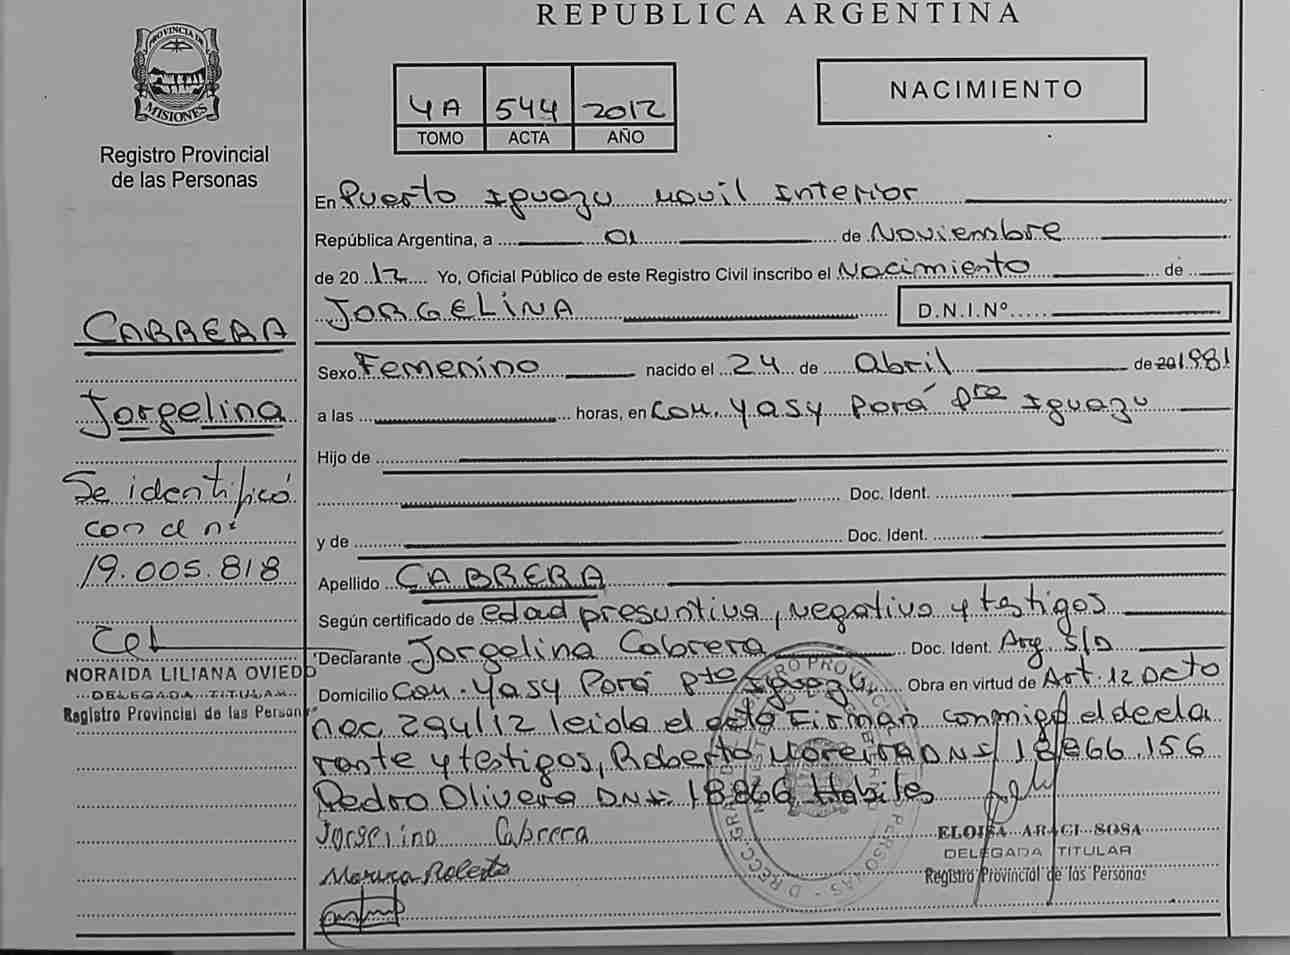 REPUBLICA ARGENTINA
PROVINCIA DE
MISIONES
Registro Provincial
de las Personas
4A 544 2012
TOMO ACTA AÑO
NACIMIENTO
En Puerto Iguazu movil Interior
República Argentina, a 01 de Noviembre
de 20 12 Yo, Oficial Público de este Registro Civil inscribo el Nacimiento de
JORGELINA D.N.I.Nº
Sexo Femenino nacido el 24 de Abril de 20 1981
a las horas, en Com. Yasy Porá Pto Iguazu
Hijo de
Doc. Ident.
y de Doc. Ident.
Apellido CABRERA
Según certificado de edad presuntiva, negativo y testigos
Declarante Jorgelina Cabrera Doc. Ident. Arg. S/D
Domicilio Com. Yasy Porá Pto Iguazu, Obra en virtud de Art. 12 Dcto
nac 294/12 leida el acta Firman conmigo el decla
rante y testigos, Roberto Moreira DNI 18866.156
Pedro Olivera DNI. 18866 Habiles
Cabrera
ELOISA ARACI SOSA
DELEGADA TITULAR
Registro Provincial de las Personas
CABRERA
Jorgelina
Se identificó
con d n:
19.005.818
NORAIDA LILIANA OVIEDO
DELEGADA TITULAR
Registro Provincial de las Personas